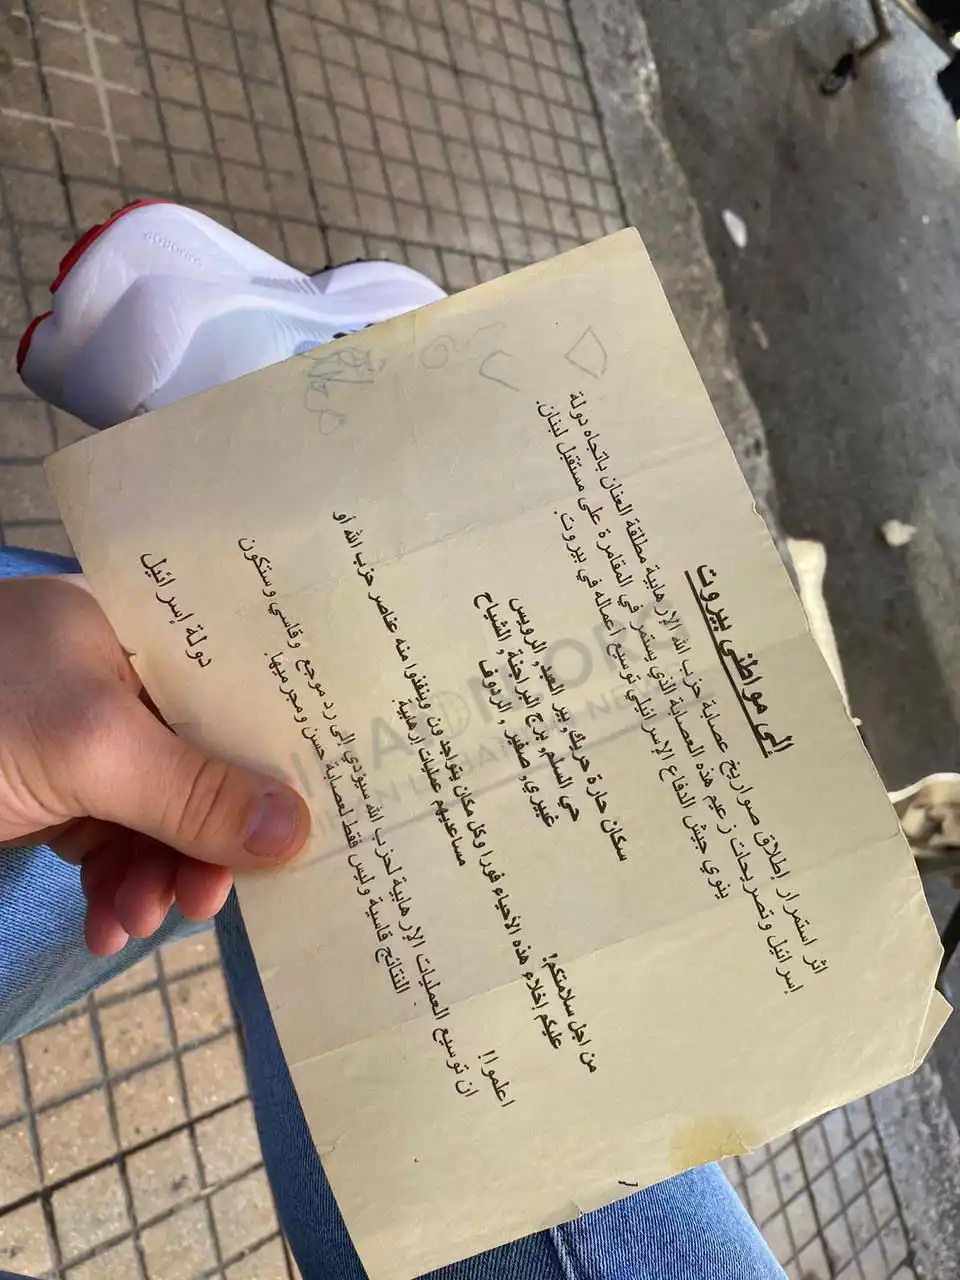 إلى مواطني بيروت
اثر استمرار إطلاق صواريخ عصابة حزب الله الإرهابية مطلقة العنان باتجاه دولة
إسرائيل وتصريحات زعيم هذه العصابة الذي يستمر في المقامرة على مستقبل لبنان.
ينوي جيش الدفاع الإسرائيلي توسيع اعماله في بيروت.
من اجل سلامتكم!
سكان حارة حريك وبير العبد والرويس
عليكم إخلاء هذه الأحياء فورا وكل مكان يتواجدون وينفذوا منه عناصر حزب الله أو
حي السلم وبرج البراجنة والشياح
غبيري، صفير، والردوف
مساعديهم عمليات إرهابية.
اعلموا!
ان توسيع العمليات الإرهابية لحزب الله سيؤدي إلى رد موجع وقاسي وستكون
النتائج قاسية وليس فقط لعصابة حسن ومجرميها.
دولة إسرائيل
LEBANESE NEWS